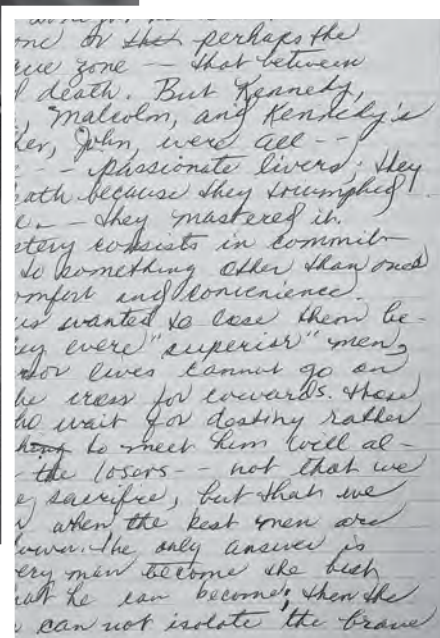 one or that perhaps the
zone -- that between
death. But Kennedy,
, Malcolm, and Kennedy's
her, John, were all --
-- passionate livers; they
ath because they triumphed
-- they mastered it.
stery consists in commit-
to something other than ones
omfort and convenience.
us wanted to lose them be-
ey were "superior" men,
rior lives cannot go on
he cross for cowards. those
ho wait for destiny rather
to meet him will al-
the losers -- not that we
sacrifice, but that we
when the best men are
The only answer is
ery man become the best
hat he can become; then the
can not isolate the brave